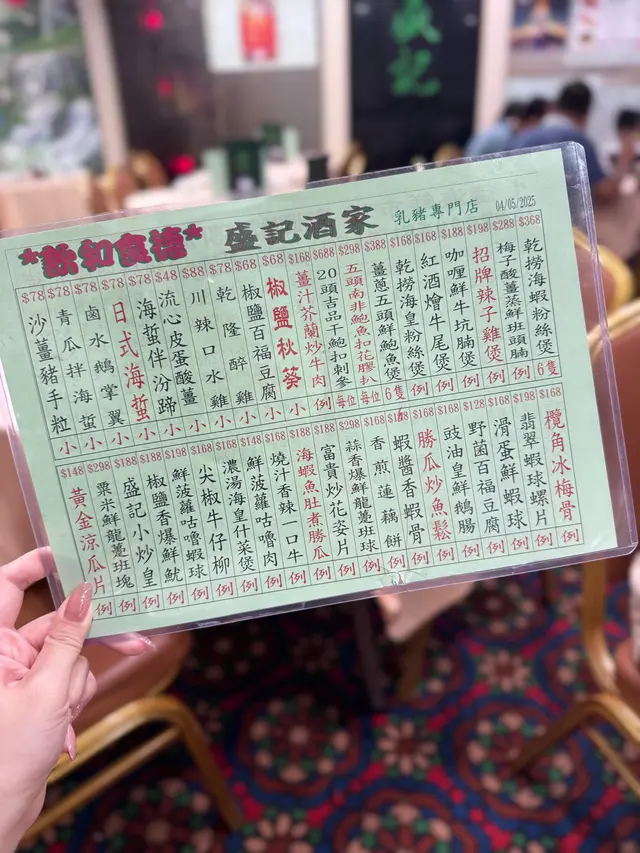 盛記
*飲和食德*
盛記酒家
乳豬專門店
04/05/2025
$368 乾撈海蝦粉絲煲 6隻
$288 梅子酸薑蒸鮮班頭腩 例
$198 招牌辣子雞煲 例
$188 咖喱鮮牛坑腩煲 例
$168 紅酒燴牛尾煲 例
$168 乾撈海皇粉絲煲 例
$388 薑蔥五頭鮮鮑魚煲 6隻
$298 五頭南非鮑魚扣花膠扒 每位
$688 20頭吉品干鮑扣刺參 每位
$168 薑汁芥蘭炒牛肉 例
$68 椒鹽秋葵 小
$68 椒鹽百福豆腐 小
$78 乾隆醉雞 小
$88 川辣口水雞 小
$48 流心皮蛋酸薑 小
$78 海蜇伴汾蹄 小
$78 日式海蜇 小
$78 鹵水鵝掌翼 小
$78 青瓜拌海蜇 小
$78 沙薑豬手粒 小
$168 欖角冰梅骨 例
$198 翡翠蝦球螺片 例
$168 滑蛋鮮蝦球 例
$128 野菌百福豆腐 例
$168 豉油皇鮮鵝腸 例
$168 勝瓜炒魚鬆 例
$188 蝦醬香蝦骨 例
$168 香煎蓮藕餅 例
$298 蒜香爆鮮龍躉班球 例
$188 富貴炒花姿片 例
$188 海蝦魚肚煮勝瓜 例
$168 燒汁香辣口牛 例
$148 鮮波蘿咕嚕肉 例
$168 濃湯海皇什菜煲 例
$168 尖椒牛仔柳 例
$198 鮮波蘿咕嚕蝦球 例
$188 椒鹽香爆鮮魷 例
$188 盛記小炒皇 例
$298 粟米鮮龍躉班塊 例
$148 黃金涼瓜片 例